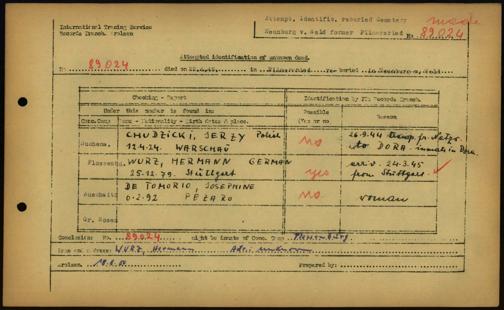 International Tracing Service
Records Branch. Arolsen
Attempt. identific. reburied Cemetery
Neunburg v. Wald former Pilmersried
made
No 89024
Attempted identification of unknown dead.
No 89.024 died on in re-buried in Neunburg v. Wald.
Checking - Report
Identification by ITS Records Branch.
Under this number is found in
Possible (Yes or no)
Reason
Conc.Camp Name - Nationality - Birth dates & place.
Buchenw. CHUDZICKI, JERZY Polish
12.4.24. WARSCHAU
no
26.9.44 transp. fr. Natzw.
to DORA
Flossenbg. WURZ, HERMANN GERMAN
25.12.79. Stuttgart
yes
arriv. 24.3.45
from Stuttgart
Auschwitz DE TOMORIO, JOSEPHINE
0.2.92 PEZARO
no
woman
Gr. Rosen
Conclusion No. 89.024 might be inmate of Conc. Camp Flossenbürg
WURZ, Hermann
Arolsen, Prepared by: